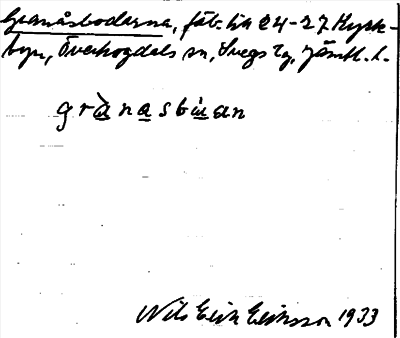 Granåsbodarna, fäb. t. ha 24-27 Myssk-
byn, Överhogdals sn, Svegs tg, Jämtl. l.
grànasbùan
Nils Erik Eriksson 1933